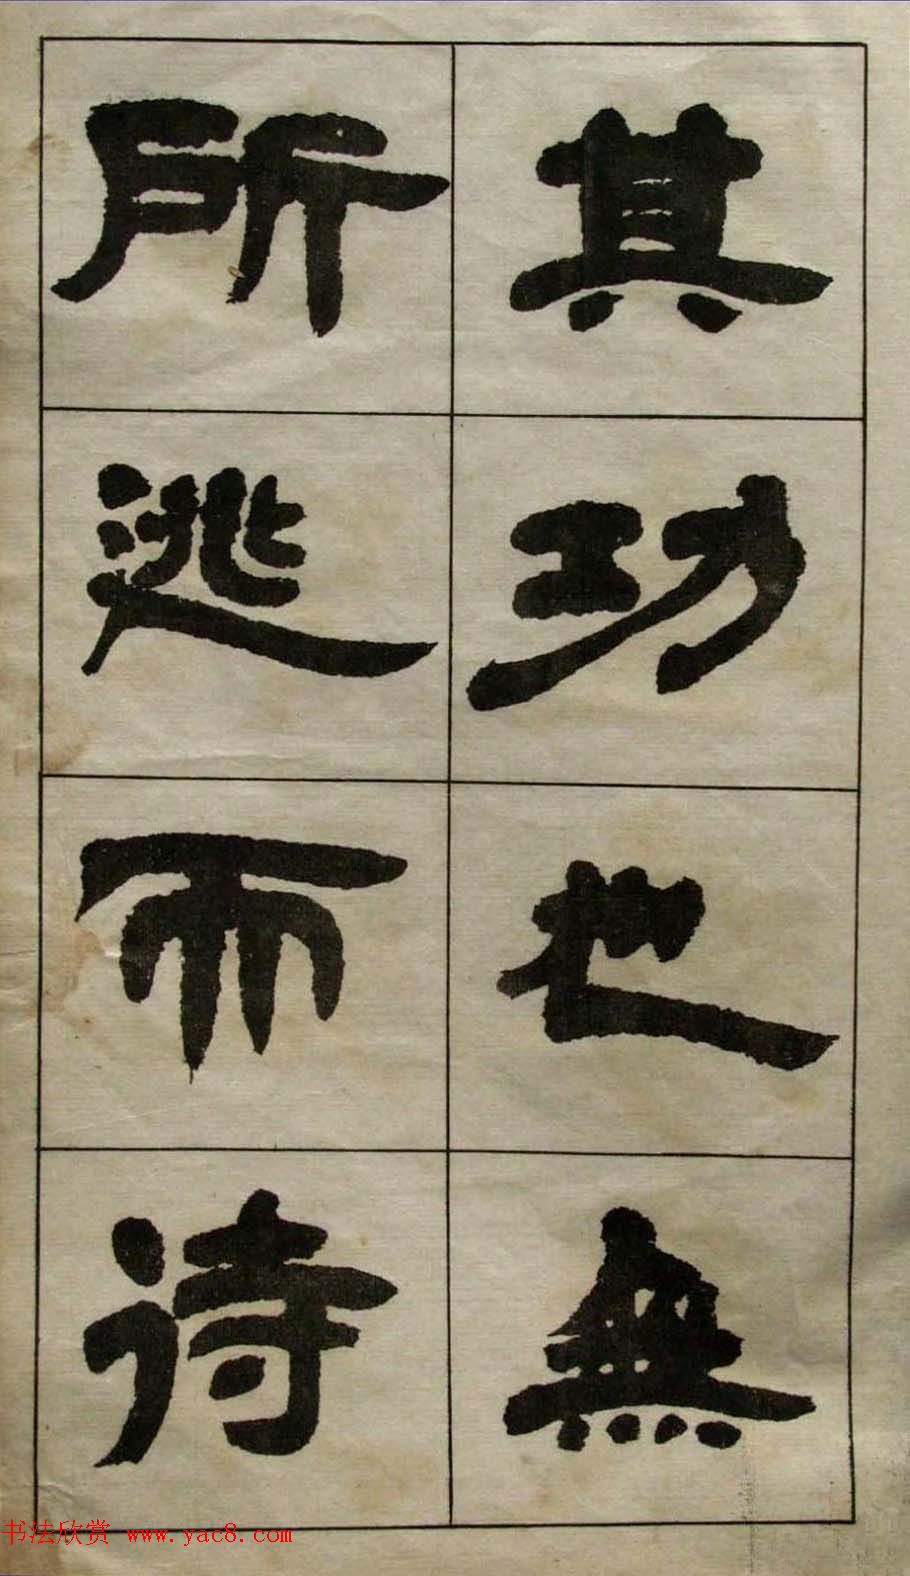 其功也無
所逃而待
书法欣赏 www.yac8.com